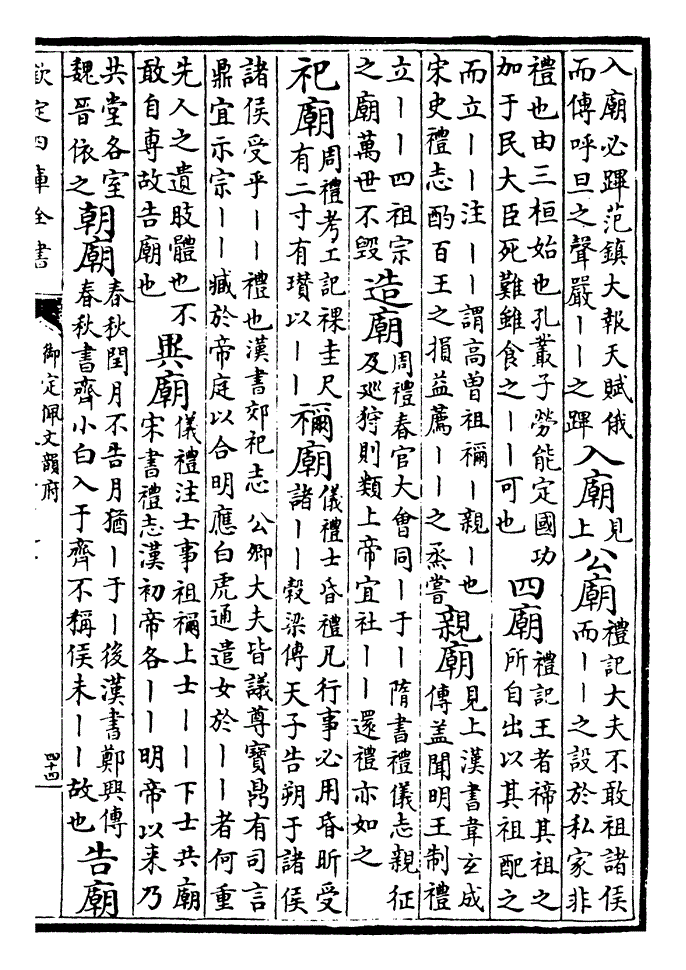 入廟必蹕范鎮大報天賦俄
而傳呼旦之聲嚴丨丨之蹕
入廟
見
上
公廟
禮記大夫不敢祖諸侯
而丨丨之設於私家非
禮也由三桓始也孔叢子勞能定國功
加于民大臣死難雖食之丨丨可也
四廟
禮記王者禘其祖之
所自出以其祖配之
而立丨丨注丨丨謂高曾祖禰丨親丨也
宋史禮志酌百王之損益薦丨丨之烝嘗
親廟
見上漢書韋玄成
傳盖聞明王制禮
立丨丨四祖宗
之廟萬世不毀
造廟
周禮春官大會同丨于丨隋書禮儀志親征
及廵狩則類上帝宜社丨丨還禮亦如之
祀廟
周禮考工記祼圭尺
有二寸有瓚以丨丨
禰廟
儀禮士昏禮凡行事必用昏昕受
諸丨丨榖梁傳天子告朔于諸侯
諸侯受乎丨丨禮也漢書郊祀志公卿大夫皆議尊寳鼎有司言
鼎宜示宗丨丨臧於帝庭以合明應白虎通遣女於丨丨者何重
先人之遺肢體也不
敢自專故告廟也
異廟
儀禮注士事祖禰上士丨丨下士共廟
宋書禮志漢初帝各丨丨明帝以来乃
共堂各室
魏晉依之
朝廟
春秋閏月不告月猶丨于丨後漢書鄭興傳
春秋書齊小白入于齊不稱侯未丨丨故也
告廟
欽定四庫全書
御定佩文韻府
四十四